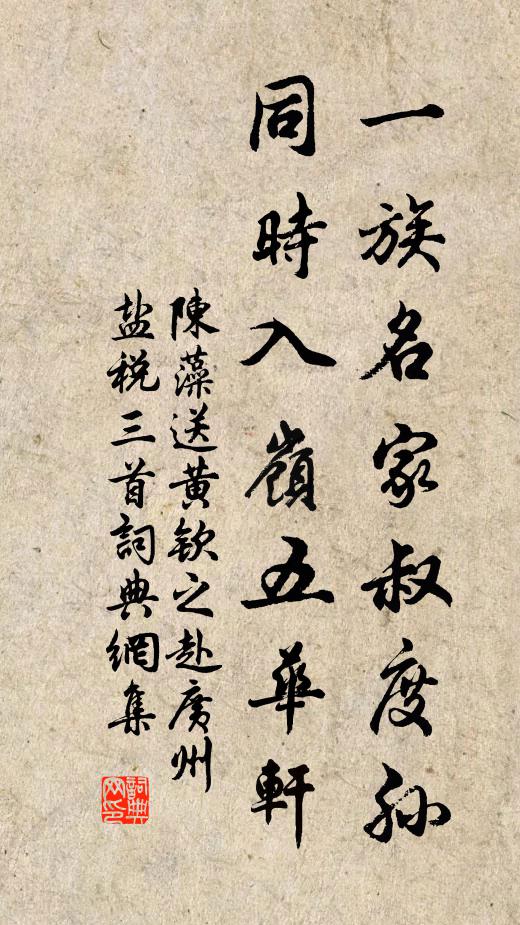 一族名家叔度孫
同時入嶺五華軒
陳藻送黄欽之赴廣州
盐税三首詞典網集
詞典网印